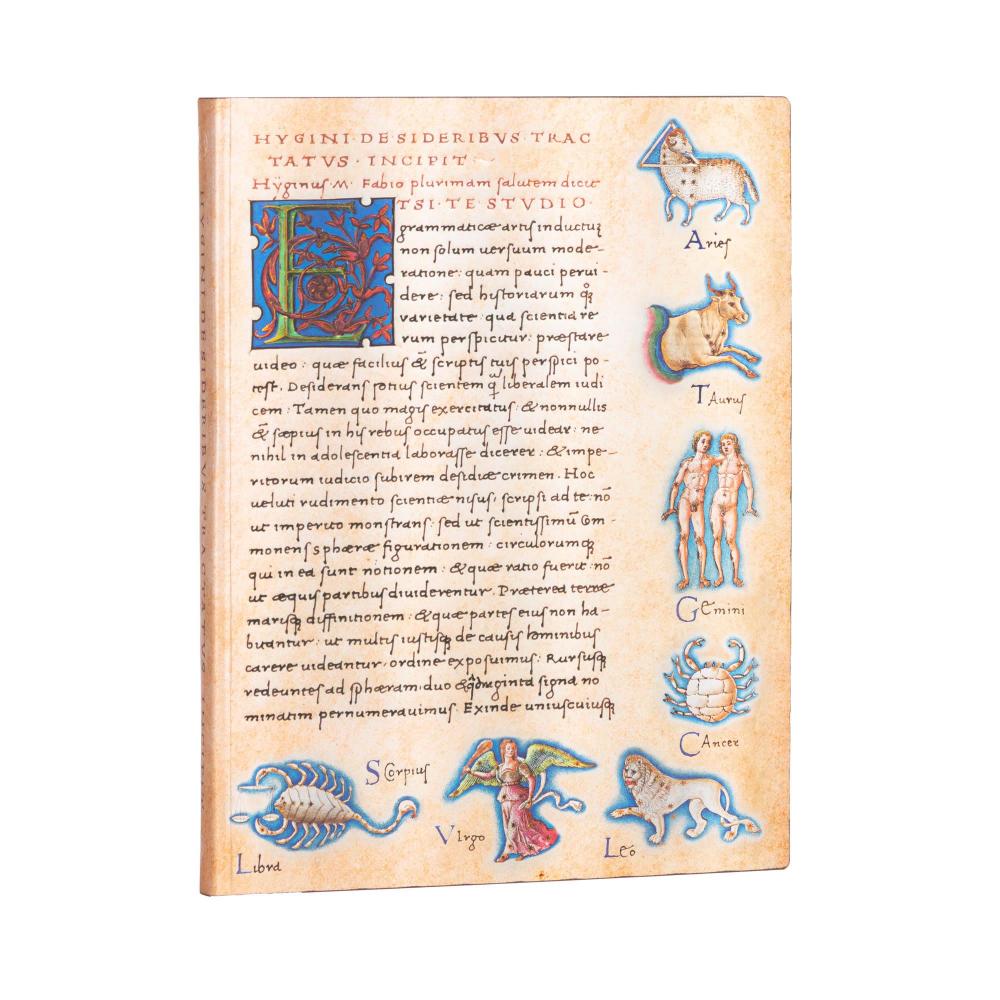 HYGINI·DE·SIDERIBVS·TRAC
TATVS·INCIPIT
Hÿginuſ·M· Fabio plurimam ſalutem dicit
ETSI·TE STVDIO·
grammaticæ artiſ inductuꝫ
non ſolum uerſuum mode-
ratione: quam pauci perui-
dere: ſed hiſtoriarum qꝫ
varietate qua ſcientia re
rum perſpicitur: præſtare
uideo: quæ facilius & ſcriptiſ tuiſ perſpici po-
teſt. Deſideranſ potiuſ ſcientem q̄ liberalem iudi
cem: Tamen quo magiſ exercitatuſ: & nonnullis
& ſæpiuſ in hiſ rebuſ occupatuſ eſſe uidear: ne
nihil in adoleſcentia laboraſſe dicerer: & impe-
ritorum iudicio ſubirem deſidiæ crimen. Hoc
ueluti rudimento ſcientiæ niſuſ, ſcripſi ad te: nō
ut imperito monſtranſ: ſed ut ſcientiſſimū Com-
monenſ sphæræ figurationem: circulorumqꝫ
qui in ea ſunt notionem: & quæ ratio fuerit: nō
ut æquiſ partibuſ diuiderentur. Præterea terræ
mariſqꝫ diffinitionem: & quæ parteſ eiuſ non ha-
bitantur: ut multiſ iuſtiſqꝫ de cauſiſ hominibus
carere uideantur, ordine expoſuimuſ. Rurſuſqꝫ
redeunteſ ad ſphæram: duo & ſigna no
minatim pernumerauimuſ. Exinde uniuſcuiuſqꝫ
Arieſ
TAuruſ
GEmini
CAncer
LEo
VIrgo
SCorpiuſ
Libra